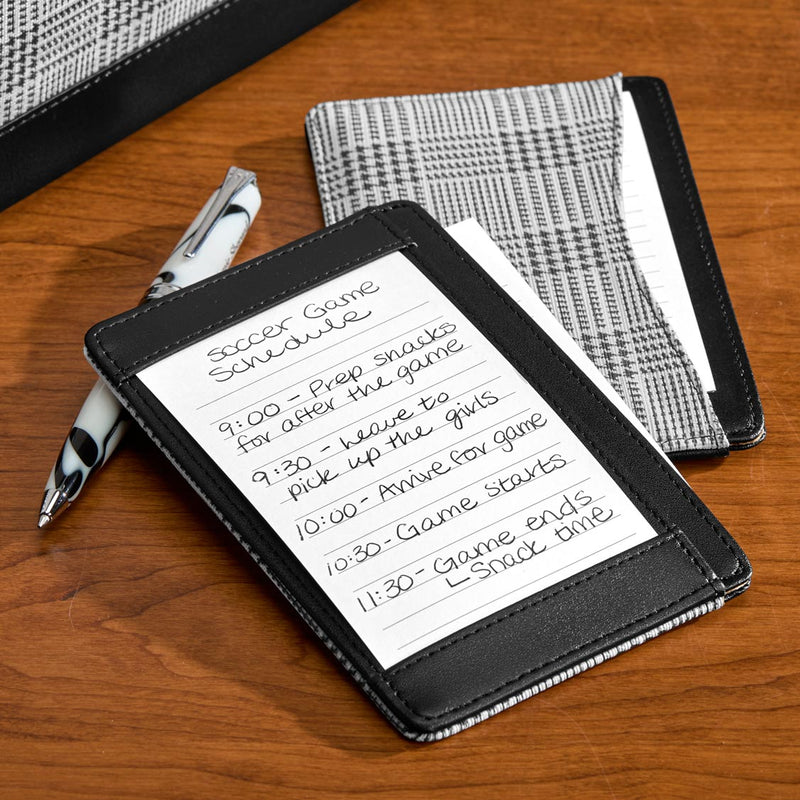 Soccer Game
Schedule
9:00 - Prep snacks
for after the game
9:30 - Leave to
pick up the girls
10:00 - Arrive for game
10:30 - Game starts
11:30 - Game ends
∟ Snack time